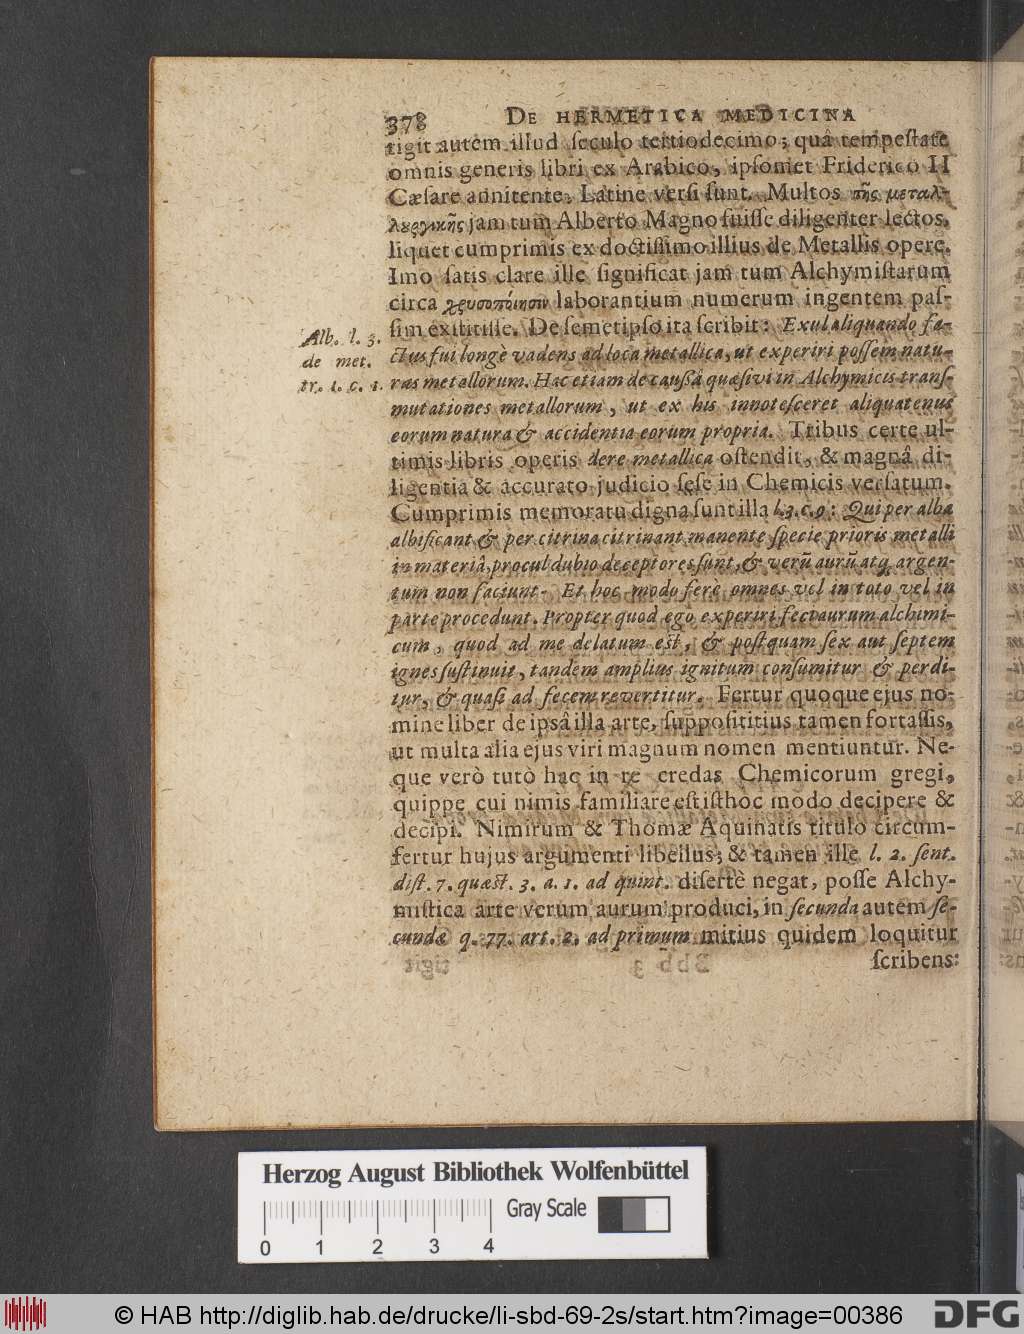 378 DE HERMETICA MEDICINA
tigit autem illud seculo tertiodecimo; quâ tempestate
omnis generis libri ex Arabico, ipsomet Friderico II
Cæsare adnitente, Latine versi sunt. Multos τῆς μεταλ-
λουργικῆς jam tum Alberto Magno fuisse diligenter lectos,
liquet cumprimis ex doctissimo illius de Metallis opere.
Imo satis clare ille significat jam tum Alchymistarum
circa χρυσοποίησιν laborantium numerum ingentem pas-
sim exstitisse. De semetipso ita scribit: Exul aliquando fa-
ctus fui longè vadens ad loca metallica, ut experiri possem natu-
ras metallorum. Hac etiam de caussâ quæsivi in Alchymicis trans-
mutationes metallorum, ut ex his innotesceret aliquatenus
eorum natura & accidentia eorum propria. Tribus certe ul-
timis libris operis de re metallica ostendit, & magnâ di-
ligentiâ & accurato judicio sese in Chemicis versatum.
Cumprimis memoratu digna sunt illa l. 3. c. 9: Qui per alba
albificant & per citrina citrinant manente specie prioris metalli
in materiâ, procul dubio deceptores sunt, & verũ aurũ atq; argen-
tum non faciunt. Et hoc modo ferè omnes vel in toto vel in
parte procedunt. Propter quod ego experiri feci aurum alchimi-
cum, quod ad me delatum est, & postquam sex aut septem
ignes sustinuit, tandem amplius ignitum consumitur & perdi-
tur, & quasi ad fecem revertitur. Fertur quoque ejus no-
mine liber de ipsâ illa arte, supposititius tamen fortassis,
ut multa alia ejus viri magnum nomen mentiuntur. Ne-
que verò tutò hac in re credas Chemicorum gregi,
quippe cui nimis familiare est isthoc modo decipere &
decipi. Nimirum & Thomæ Aquinatis titulo circum-
fertur hujus argumenti libellus; & tamen ille l. 2. sent.
dist. 7. quæst. 3. a. 1. ad quint. disertè negat, posse Alchy-
mistica arte verum aurum produci, in secunda autem se-
cundæ q. 77. art. 2. ad primum mitius quidem loquitur
scribens:
Alb. l. 3.
de met.
tr. 1. c. 1.
Herzog August Bibliothek Wolfenbüttel
Gray Scale
0 1 2 3 4
© HAB http://diglib.hab.de/drucke/li-sbd-69-2s/start.htm?image=00386
DFG